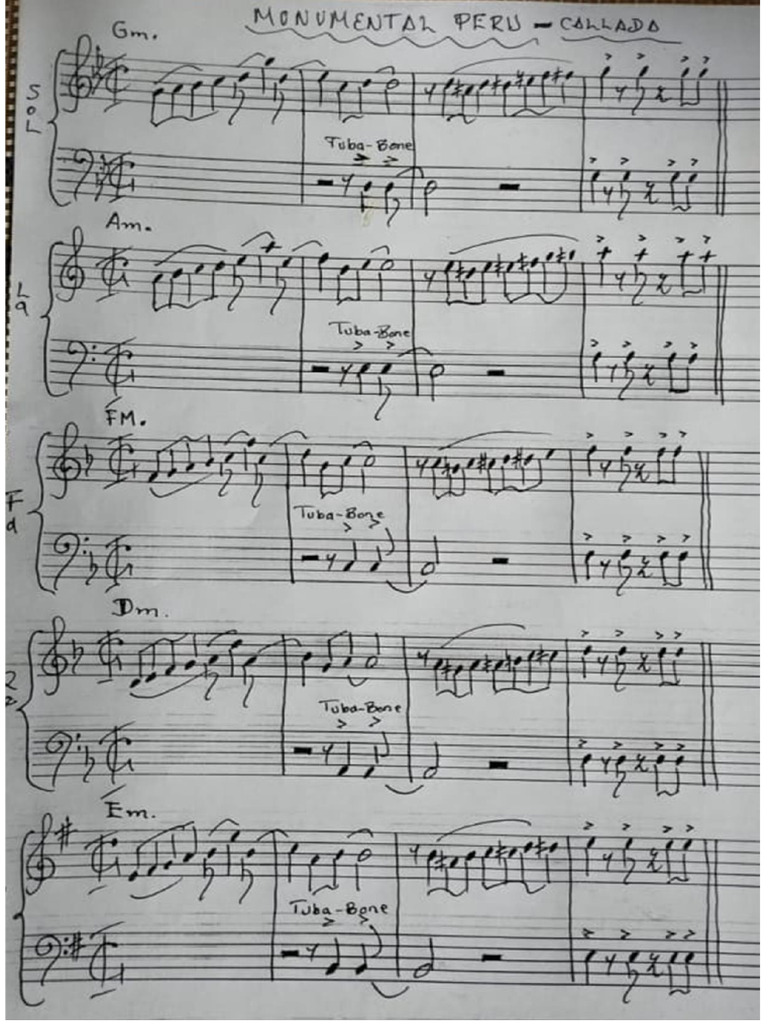 MONUMENTAL PERU - CALLADA
Gm.
SOL
Tuba-Bone
Am.
La
Tuba-Bone
FM.
Fa
Tuba-Bone
Dm.
Tuba-Bone
Em.
Tuba-Bone